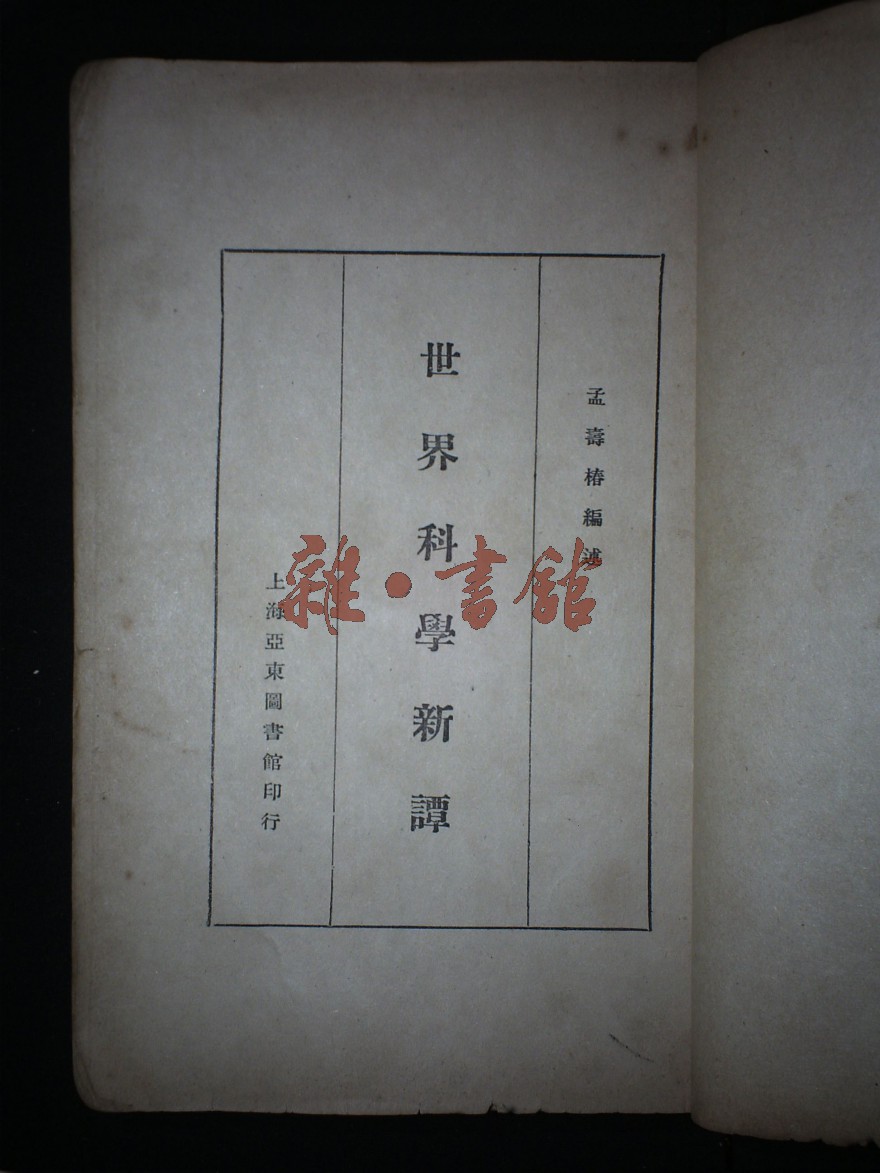 孟壽椿編述
世界科學新譚
上海亞東圖書館印行
雜·書館